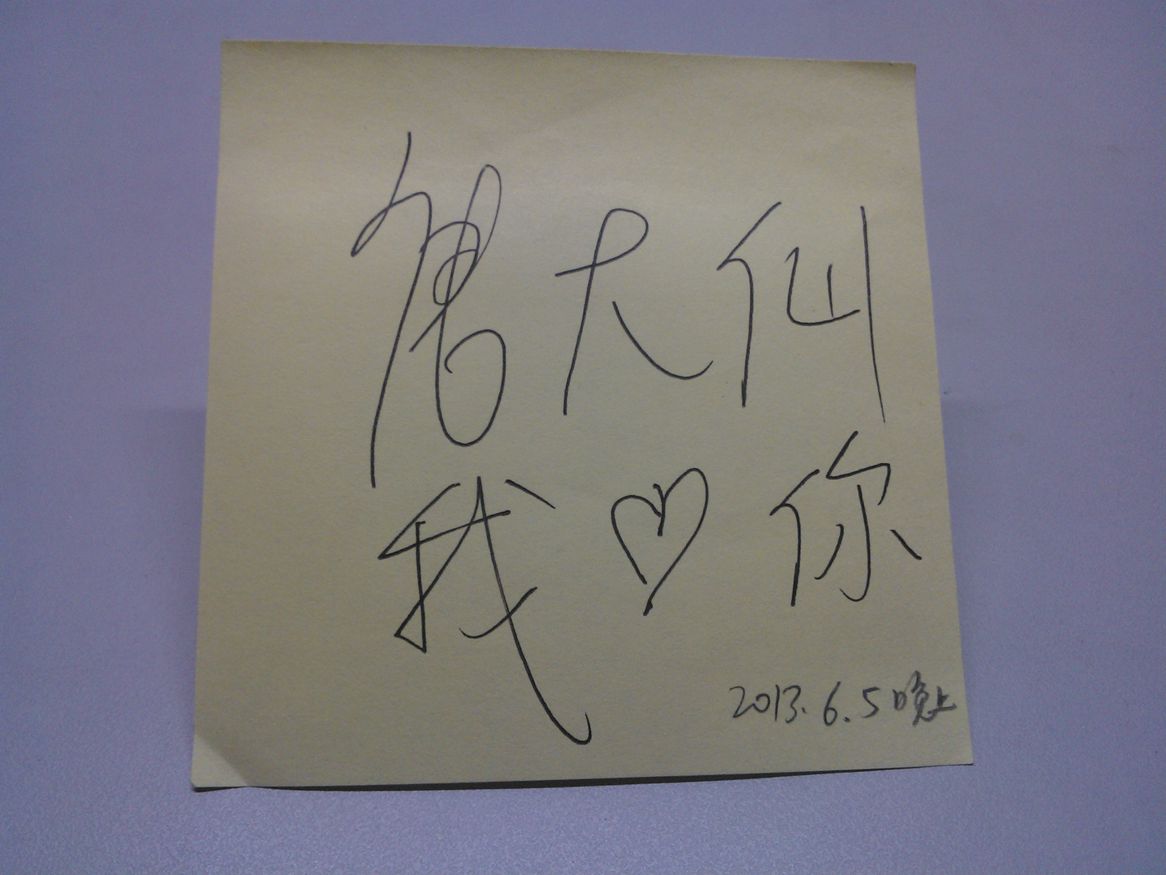 大仙
我♡你
2013.6.5 晚上